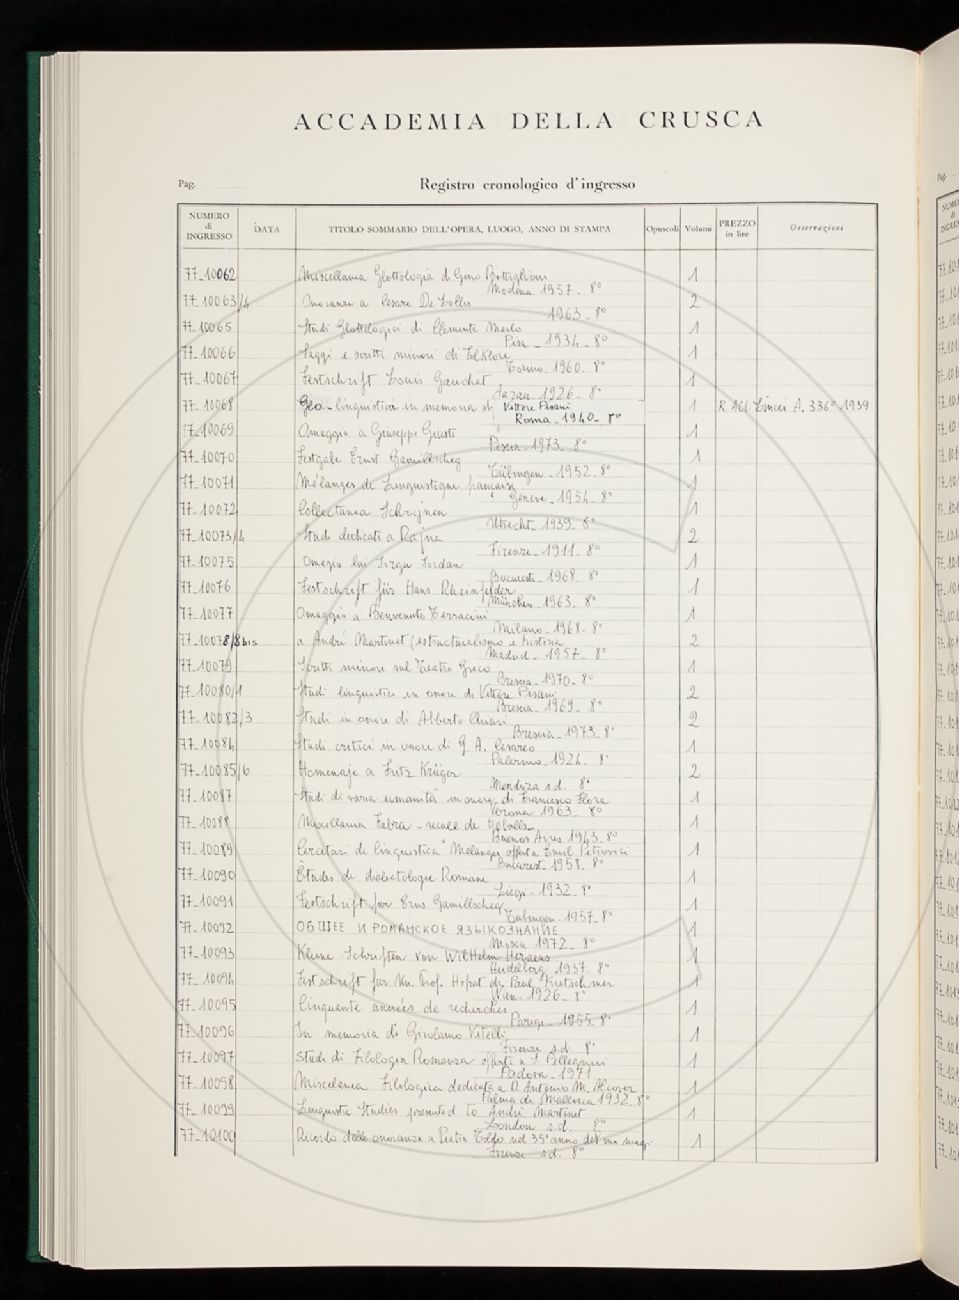 ACCADEMIA DELLA CRUSCA
Pag.
Registro cronologico d'ingresso
NUMERO di INGRESSO DATA TITOLO SOMMARIO DELL'OPERA, LUOGO, ANNO DI STAMPA Opuscoli Volumi PREZZO in lire Osservazioni
77-10062 Miscellania Glottologia di Gino Bottiglioni 1
Modena 1957- 8°
77-10063/4 Onoranze a Cesare De Lollis 2
1963- 8°
77-10065 Studi Glottologici di Clemente Merlo 1
Pisa - 1934- 8°
77-10066 Saggi e scritti minori di Folklore 1
Torino- 1960- 8°
77-10067 Festschrift Louis Gauchat 1
Aarau- 1926- 8°
77-10068 Geo-linguistica in memoria di Vittore Pisani 1 R. Acc. Lincei A. 336°-1939
Roma- 1940- 8°
77-10069 Omaggio a Giuseppe Giusti 1
Pescia- 1973- 8°
77-10070 Festgabe Ernst Gamillscheg 1
Tübingen- 1952- 8°
77-10071 Mélanges de Linguistique française 1
Genève- 1954- 8°
77-10072 Collectanea Schrijnen 1
Utrecht- 1939- 8°
77-10073/4 Studi dedicati a Rajna 2
Firenze- 1911- 8°
77-10075 Omagio lui Iorgu Iordan 1
Bucuresti- 1968- 8°
77-10076 Festschrift für Hans Rheinfelder 1
München- 1963- 8°
77-10077 Omaggio a Benvenuto Terracini 1
Milano- 1968- 8°
77-10078/8bis a André Martinet (estructuralismo e historia 2
Madrid- 1957- 8°
77-10079 Scritti minori sul Teatro Greco 1
Brescia- 1970- 8°
77-10080/1 Studi linguistici in onore di Vittore Pisani 2
Brescia- 1969- 8°
77-10082/3 Studi in onore di Alberto Chiari 2
Brescia- 1973- 8°
77-10084 Studi critici in onore di G. A. Cesareo 1
Palermo- 1924- 8°
77-10085/6 Homenaje a Fritz Krüger 2
Mendoza s.d. 8°
77-10087 Studi di varia umanità in onore di Francesco Flora 1
Verona 1963- 8°
77-10088 Miscellania Fabra - recull de treballs 1
Buenos Aires 1943- 8°
77-10089 Cercetari de linguistica "Mélanges offert a Emil Petrovici 1
Bucarest- 1958- 8°
77-10090 Études de dialectologie Romane 1
Liegi- 1932- 8°
77-10091 Festschrift fur Erns Gamillscheg 1
Tubingen- 1957- 8°
77-10092 ОБЩЕЕ И РОМАНСКОЕ ЯЗЫКОЗНАНИЕ 1
Mosca 1972- 8°
77-10093 Kleine Schriften von Wilhelm Heraeus 1
Heidelberg 1937- 8°
77-10094 Festschrift fur Un. Prof. Hofrat dr. Paul Kretschmer 1
Wien- 1926- 8°
77-10095 Cinquante années de recherches 1
Parigi- 1955- 8°
77-10096 In memoria di Girolamo Vitelli 1
Firenze s.d. 8°
77-10097 Studi di Filologia Romanza offerti a S. Pellegrini 1
Padova- 1971
77-10098 Miscelania Filologica dedicata a D. Antonio M. Alcover 1
Palma de Mallorca 1932- 8°
77-10099 Linguistic Studies presented to André Martinet 1
London s.d. 8°
77-10100 Ricordo delle onoranze a Pietro Toldo nel 35° anno del suo mag. 1
Firenze s.d. 8°